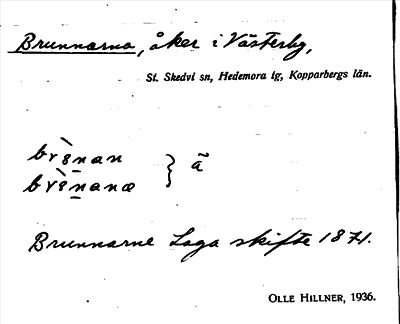 Brunnarna, åker i Västerby,
St. Skedvi sn, Hedemora tg, Kopparbergs län.
brùnan } ã
brùnanæ
Brunnarne Laga skifte 1871.
OLLE HILLNER, 1936.